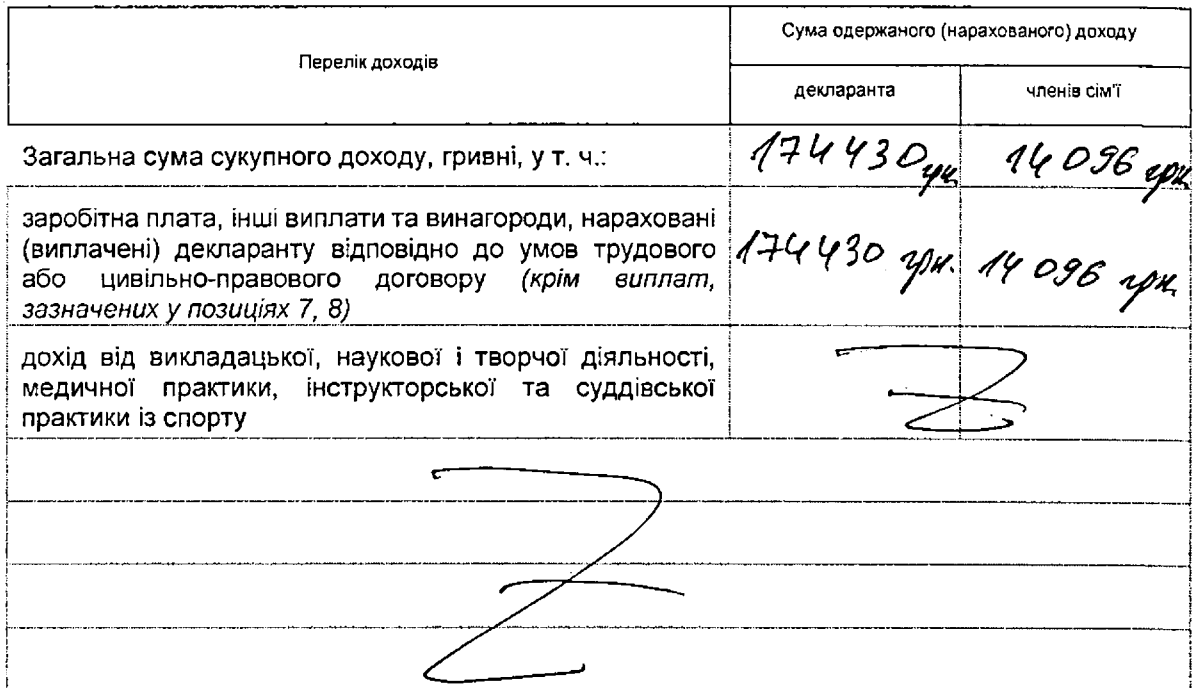 Перелік доходів
Сума одержаного (нарахованого) доходу
декларанта
членів сім'ї
Загальна сума сукупного доходу, гривні, у т. ч.:
174 430 грн
14 096 грн
заробітна плата, інші виплати та винагороди, нараховані
(виплачені) декларанту відповідно до умов трудового
або цивільно-правового договору (крім виплат,
зазначених у позиціях 7, 8)
174 430 грн.
14 096 грн
дохід від викладацької, наукової і творчої діяльності,
медичної практики, інструкторської та суддівської
практики із спорту